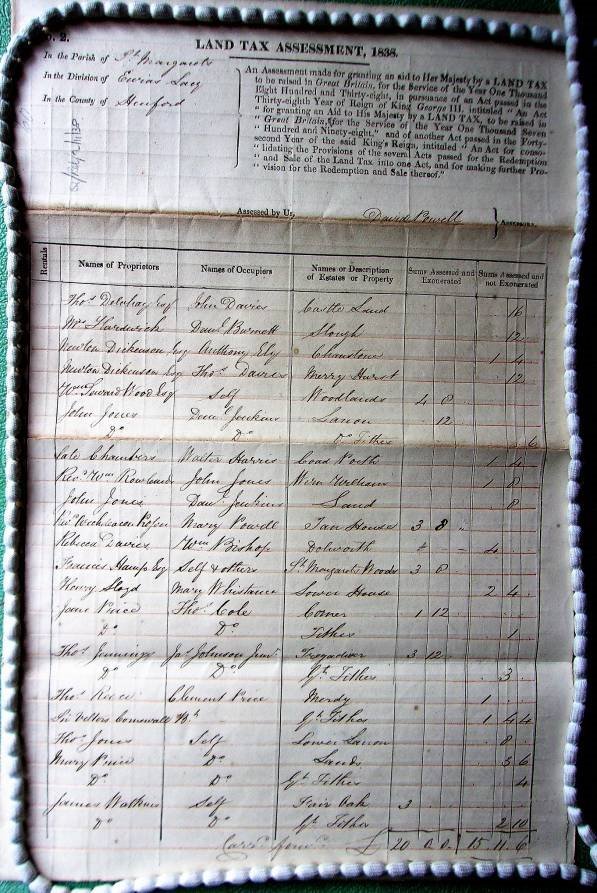 o. 2.
LAND TAX ASSESSMENT, 1838.
In the Parish of St. Margarets
In the Division of Ewias Lacy
In the County of Hereford
An Assessment made for granting an aid to Her Majesty by a LAND TAX
to be raised in Great Britain, for the Service of the Year One Thousand
Eight Hundred and Thirty-eight, in pursuance of an Act passed in the
Thirty-eighth Year of Reign of King George III. intituled "An Act
" for granting an Aid to His Majesty by a LAND TAX, to be raised in
" Great Britain, for the Service of the Year One Thousand Seven
" Hundred and Ninety-eight," and of another Act passed in the Forty-
second Year of the said King's Reign, intituled "An Act for conso-
" lidating the Provisions of the several Acts passed for the Redemption
" and Sale of the Land Tax into one Act, and for making further Pro-
" vision for the Redemption and Sale thereof."
Assessed by Us, David Powell } Assessors.
Rentals Names of Proprietors Names of Occupiers Names or Description of Estates or Property Sums Assessed and Exonerated Sums Assessed and not Exonerated
Thos. Delahay Esq John Davies Castle Land 16
Mrs Hardwick Danl. Burnett Slough 12
Newton Dickenson Esq Anthony Ely Chanstone 1 4
Newton Dickenson Esq Thos. Davies Merry Hurst 12
Wm Seward Wood Esq Self Woodlands 4 0
John Jones Danl. Jenkins Lanon 12
Do Do Do Tithes 6
Late Chambers Walter Harris Coad Poeth 1 4
Revd. Wm Rowlands John Jones Wern William 1 8
John Jones Danl. Jenkins Land 8
Mary Powell Tan House 3 8
Rebecca Davies Wm Bishop 4
Francis Hamp Esq Self & others St. Margarets Woods 3 0
Henry Lloyd Mary Whistance Lower House 2 4
Jane Price Thos. Cole Corner 1 12
Do Do Tithes 1
Thos. Jennings Jas. Johnson Junr. Tregadiver 3 12
Do Do Gt. Tithes 3
Thos. Reece Clement Price Merdy 1
Sir Vellers Cornewall Bt. Gt. Tithes 1 4 4
Thos. Jones Self Lower Lanon 8
Mary Price Do Lands 3 6
Do Do Gt. Tithes 4
James Watkins Self Fair Oak 3
Do Do Gt. Tithes 2 10
Carrd. forwd. £ 20 0 0 15 11 6